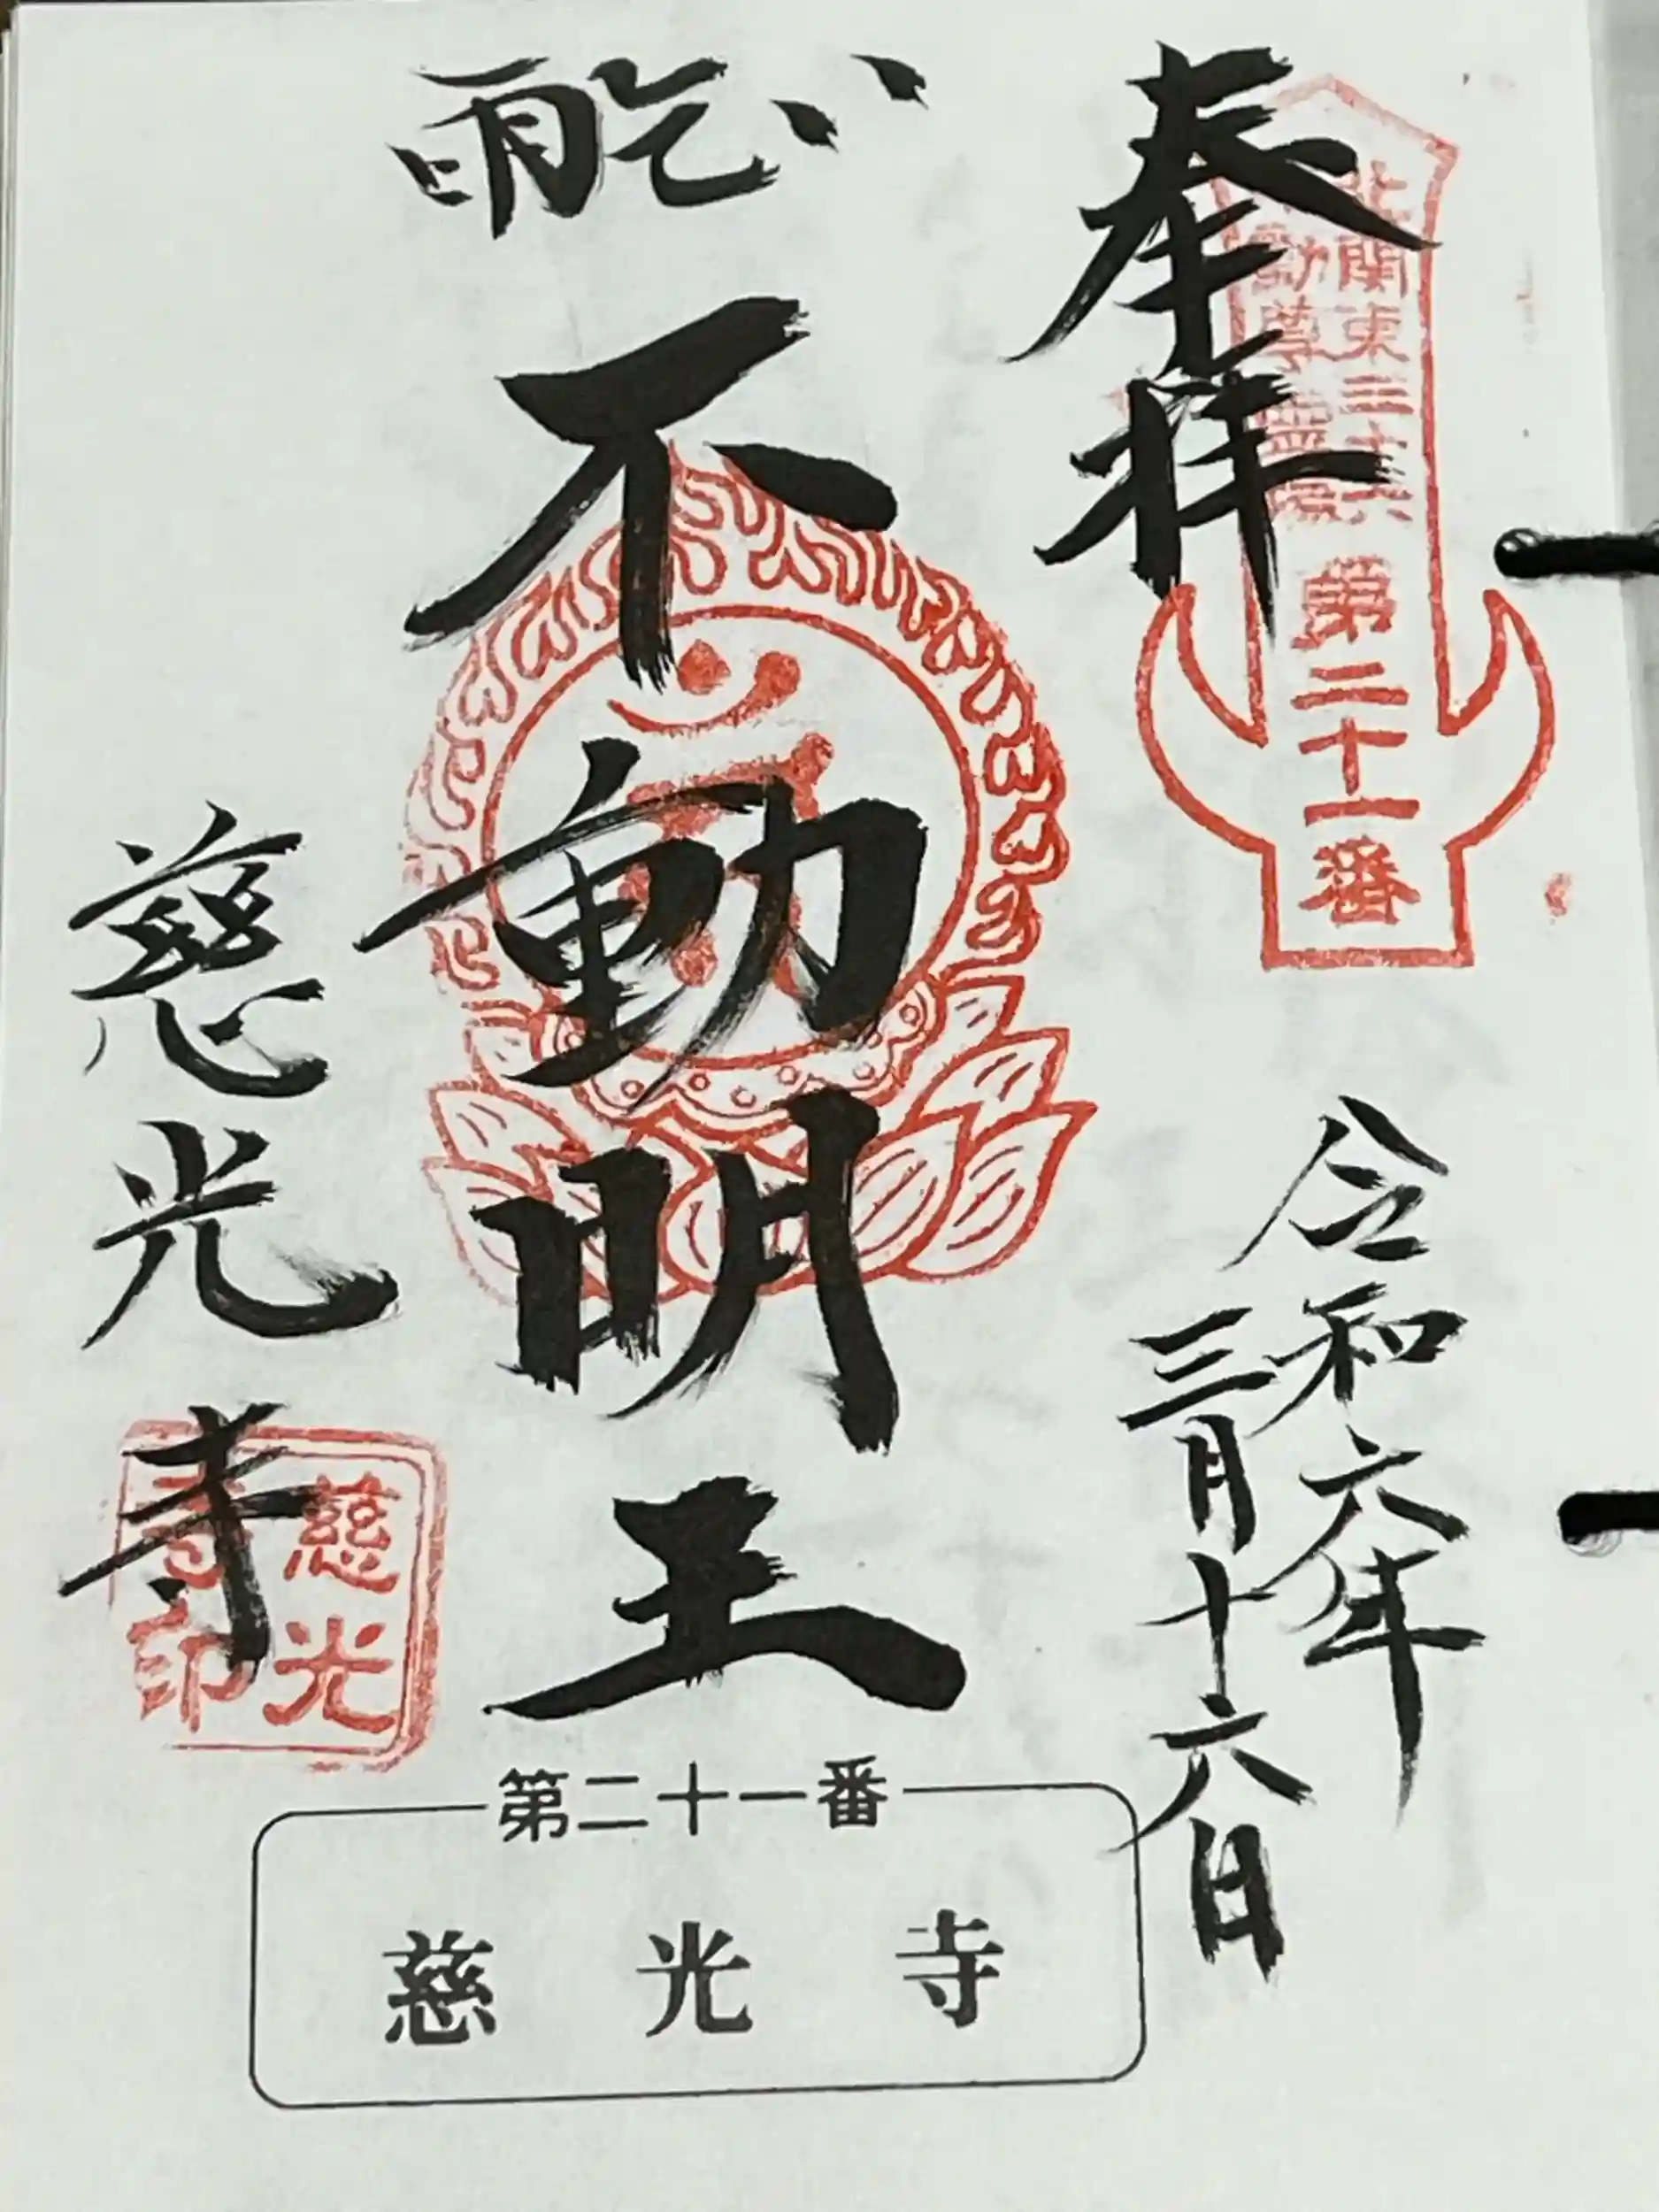 奉拝
北関東三十六
動尊霊場
第二十一番
令和六年
三月十六日
雨乞い
不動明王
慈光寺
慈光
寺印
第二十一番
慈光寺